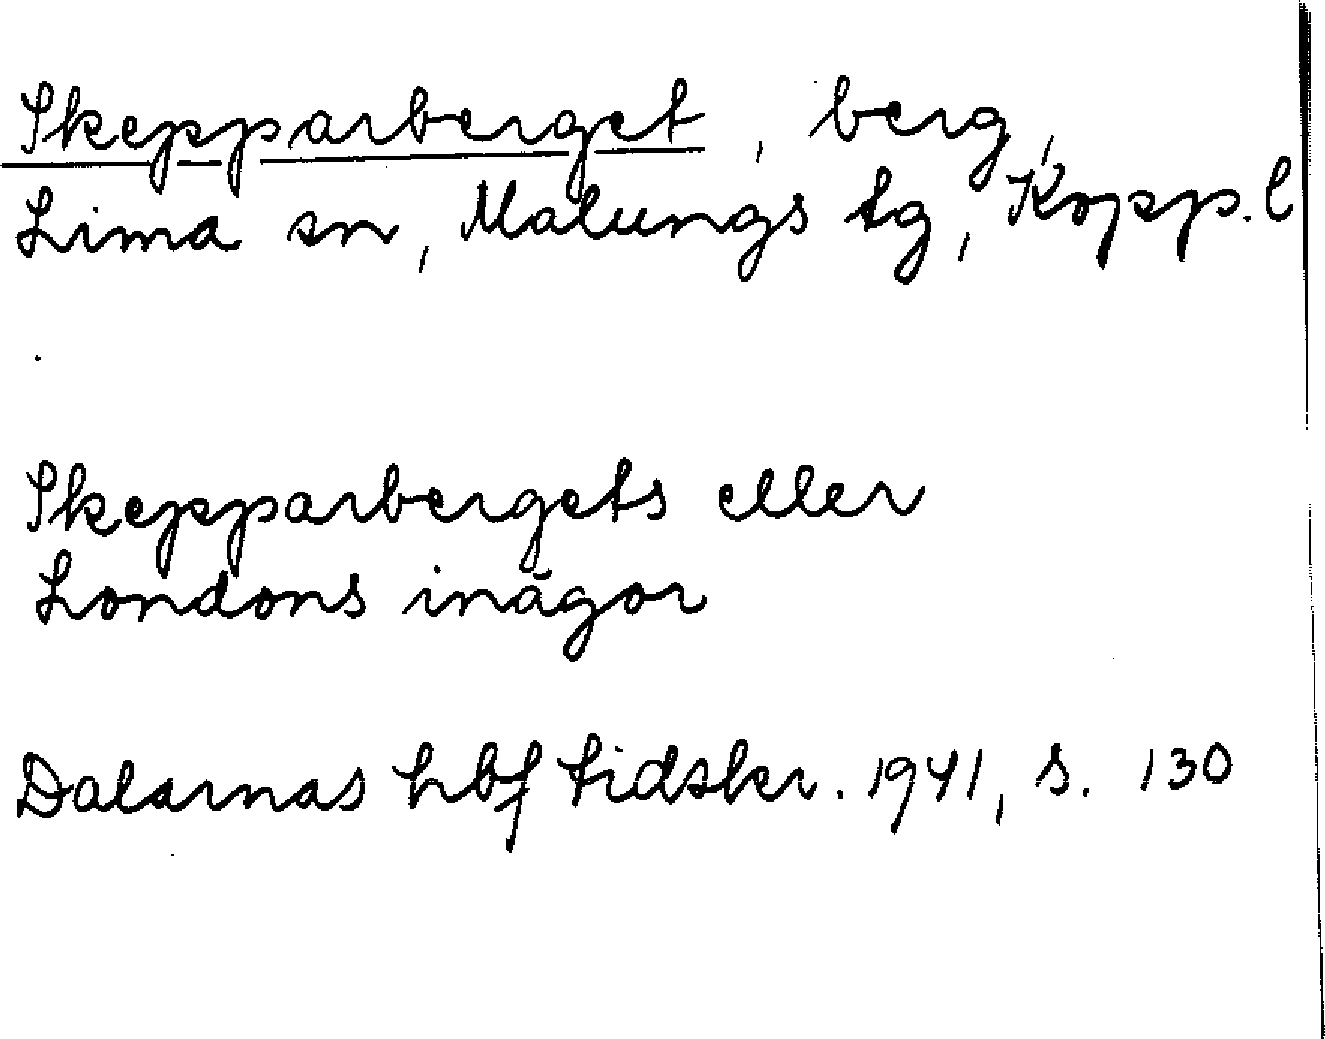 Skepparberget, berg,
Lima sn, Malungs tg, Kopp. l
Skepparbergets eller
Londons inägor
Dalarnas hbf tidskr. 1941, s. 130